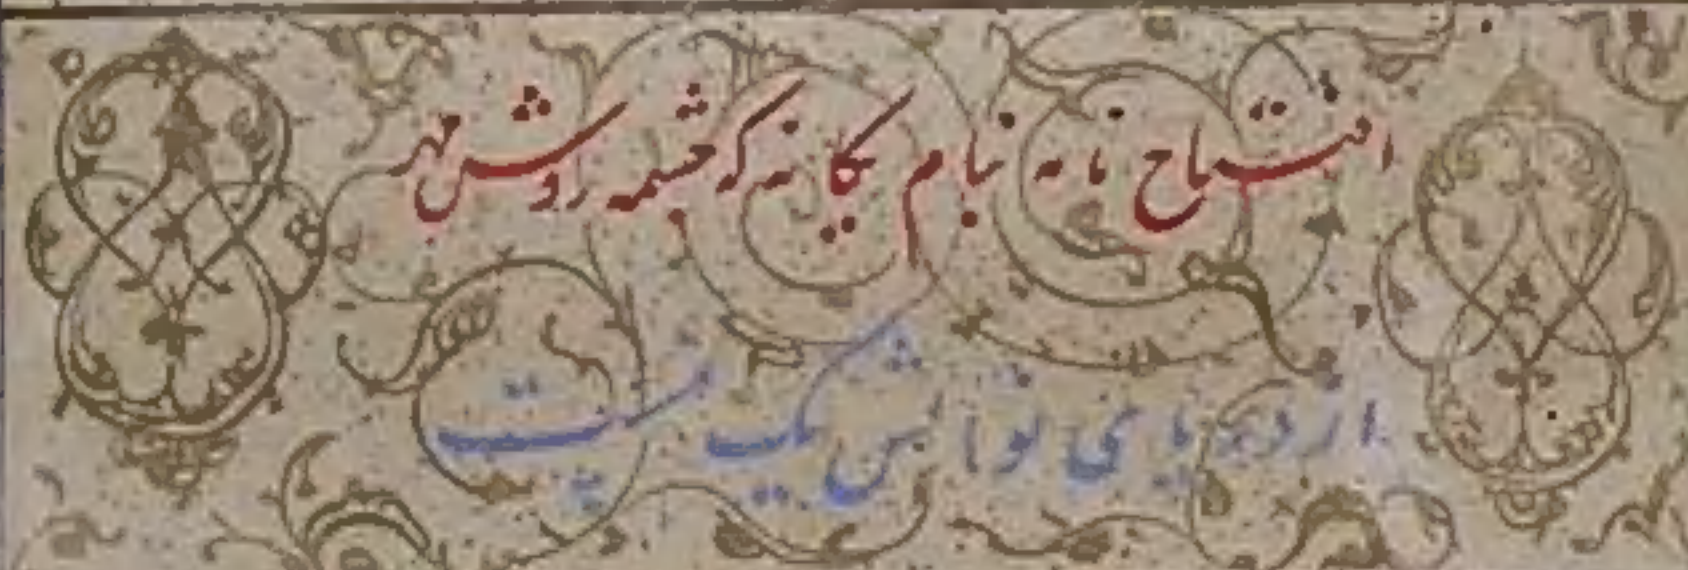 افتتاح نامه بنام یگانه که چشمه روشن مهر
از دریای نوالش یک